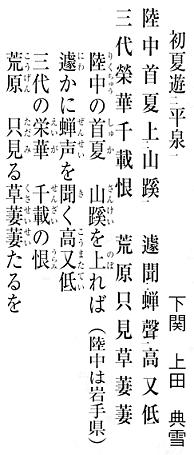 初夏遊二平泉一
下関 上田 典雪
陸中首夏上二山蹊一 遽聞蟬聲高又低
三代榮華千載恨 荒原只見草萋萋
陸中の首夏 山蹊を上れば（陸中は岩手県）
遽かに蝉声を聞く高又低
三代の栄華 千載の恨
荒原 只見る草萋萋たるを